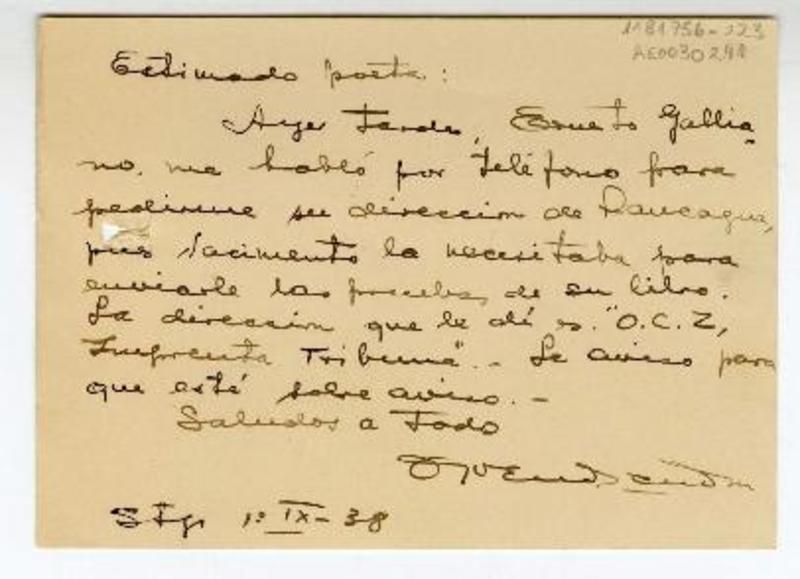 1181756-123
AE0030291
Estimado poeta:
Ayer tarde, Ernesto Gallia-
no, me habló por teléfono para
pedirme su direccion de Rancagua,
pues Nacimento la necesitaba para
enviarle las pruebas de su libro.
La direccion que le dí es: "O.C.Z,
Imprenta Tribuna". - Le aviso para
que esté sobre aviso. -
Saludos a Todo
Stgo 1º IX - 38